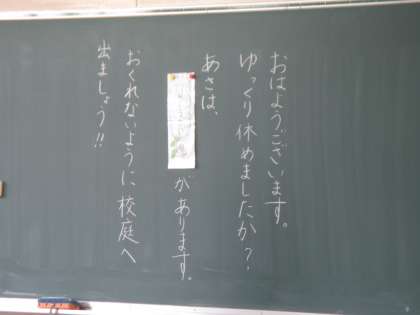 おはようございます。
ゆっくり休めましたか？
あさは、
があります。
おくれないように校庭へ
出ましょう!!